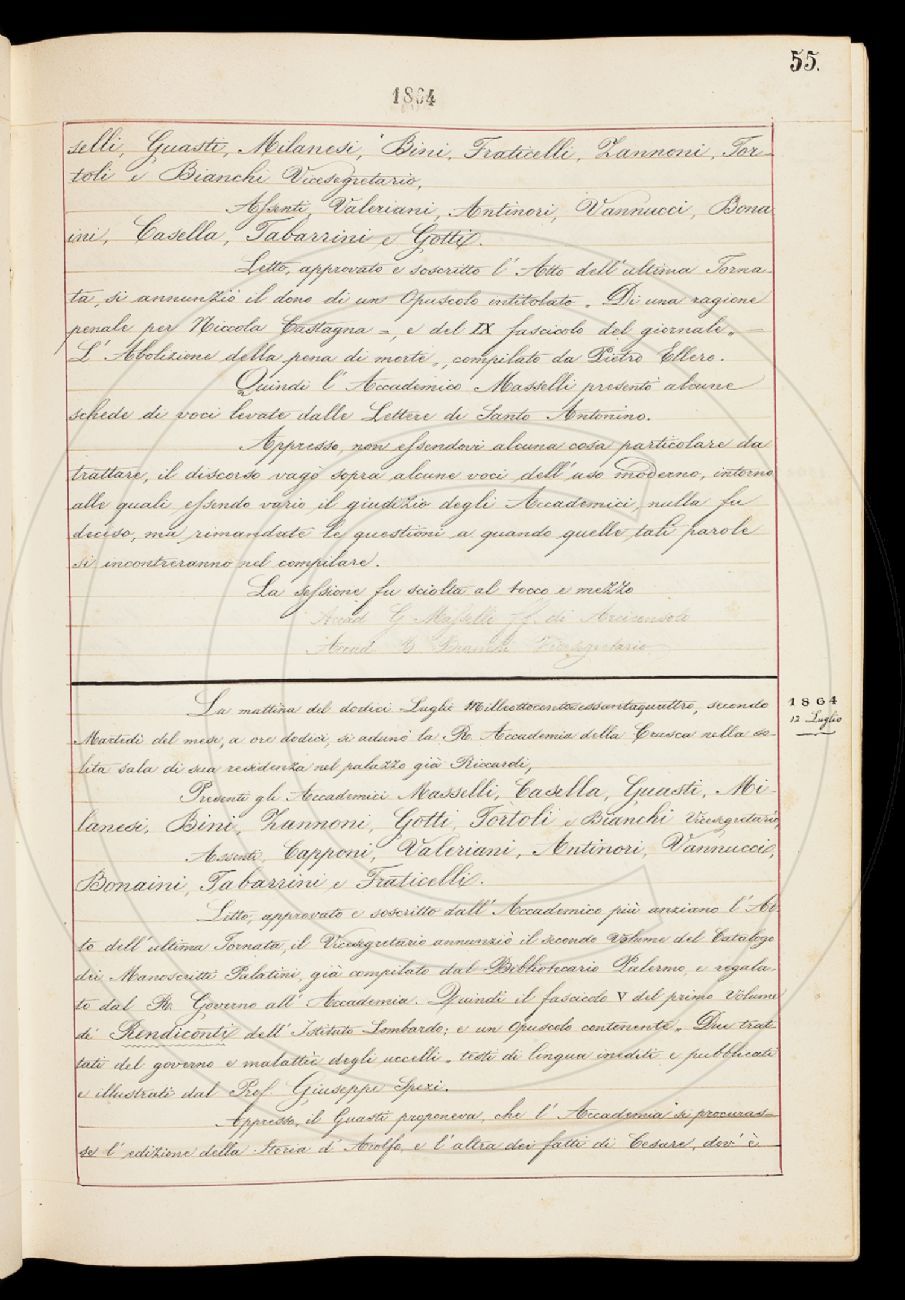 55.
1864
selli, Guasti, Milanesi, Bini, Fraticelli, Zannoni, Tor-
toli e Bianchi Vicesegretario,
Assenti, Valeriani, Antinori, Vannucci, Bona
ini, Casella, Tabarrini e Gotti.
Letto, approvato e soscritto l'Atto dell'ultima Torna-
ta, si annunziò il dono di un Opuscolo intitolato „ Di una ragione
penale per Niccola Castagna =, e del IX fascicolo del giornale „ —
L'Abolizione della pena di morte „, compilato da Pietro Ellero.
Quindi l'Accademico Masselli presentò alcune
schede di voci levate dalle Lettere di Santo Antonino.
Appresso, non essendovi alcuna cosa particolare da
trattare, il discorso vagò sopra alcune voci dell'uso moderno, intorno
alle quali essendo vario il giudizio degli Accademici, nulla fu
deciso, ma rimandate le questioni a quando quelle tali parole
si incontreranno nel compilare.
La sessione fu sciolta al tocco e mezzo
Accad G Masselli ff. di Arciconsolo
Accad B Bianchi Vicesegretario
La mattina del dodici Luglio Milleottocentosessantaquattro, secondo
1864
12 Luglio
Martedì del mese, a ore dodici, si adunò la R. Accademia della Crusca nella so-
lita sala di sua residenza nel palazzo già Riccardi,
Presenti gli Accademici Masselli, Casella, Guasti, Mi-
lanesi, Bini, Zannoni, Gotti, Tortoli e Bianchi Vicesegretario,
Assenti, Capponi, Valeriani, Antinori, Vannucci,
Bonaini, Tabarrini e Fraticelli.
Letto, approvato e soscritto dall'Accademico più anziano l'At-
to dell'ultima Tornata, il Vicesegretario annunziò il secondo Volume del Catalogo
dei Manoscritti Palatini, già compilato dal Bibliotecario Palermo, e regala-
to dal R. Governo all'Accademia. Quindi il fascicolo V del primo Volume
de' Rendiconti dell'Istituto Lombardo; e un opuscolo contenente „ Due trat-
tati del governo e malattie degli uccelli „ testi di lingua inediti e pubblicati
e illustrati dal Prof Giuseppe Spezi.
Appresso, il Guasti proponeva, che l'Accademia si procuras-
se l'edizione della Storia d'Aiolfo, e l'altra dei fatti di Cesare, dov'è